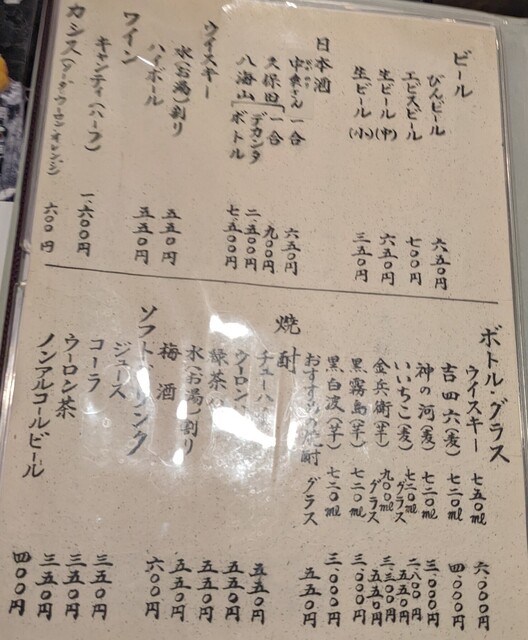 ビール
びんビール 六五〇円
エビスビール 七〇〇円
生ビール(中) 六五〇円
生ビール(小) 三五〇円
日本酒
中乗さん 一合 六五〇円
久保田 一合 九〇〇円
デカンタ 二、五〇〇円
八海山 ボトル 七、五〇〇円
ウイスキー
水(お湯)割り 五五〇円
ハイボール 五五〇円
ワイン
キャンティ(ハーフ) 一、六〇〇円
カシス(ソーダ・ウーロン・オレンジ) 六〇〇円
ボトル・グラス
ウイスキー 七五〇ml 六、〇〇〇円
吉四六(麦) 七二〇ml 四、〇〇〇円
神の河(麦) 七二〇ml 三、〇〇〇円
いいちこ(麦) 七二〇ml 二、八〇〇円
グラス 五五〇円
金兵衛(芋) 九〇〇ml 三、三〇〇円
グラス 五五〇円
黒霧島(芋) 七二〇ml 三、〇〇〇円
黒白波(芋) 七二〇ml 三、〇〇〇円
おすすめの焼酎 グラス 五五〇円
焼酎
チューハ 五五〇円
ウーロン 五五〇円
緑茶 五五〇円
水(お湯)割り 五五〇円
梅酒 六〇〇円
ソフトドリンク
ジュース 三五〇円
コーラ 三五〇円
ウーロン茶 三五〇円
ノンアルコールビール 四〇〇円